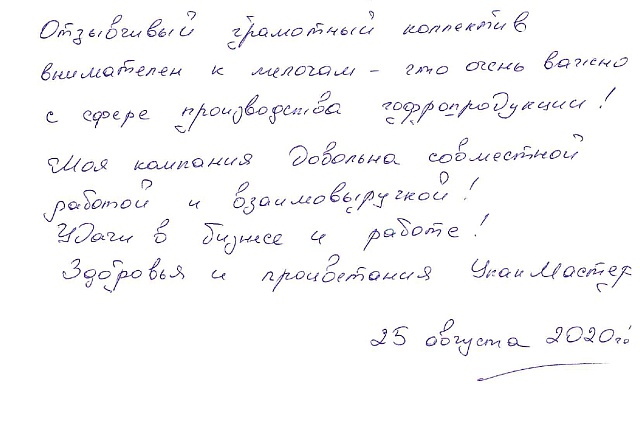 Отзывчивый грамотный коллектив
внимателен к мелочам – что очень важно
с сфере производства гофропродукции!
Моя компания довольна совместной
работой и взаимовыручкой!
Удачи в бизнесе и работе!
Здоровья и процветания УпакМастер
25 августа 2020г.